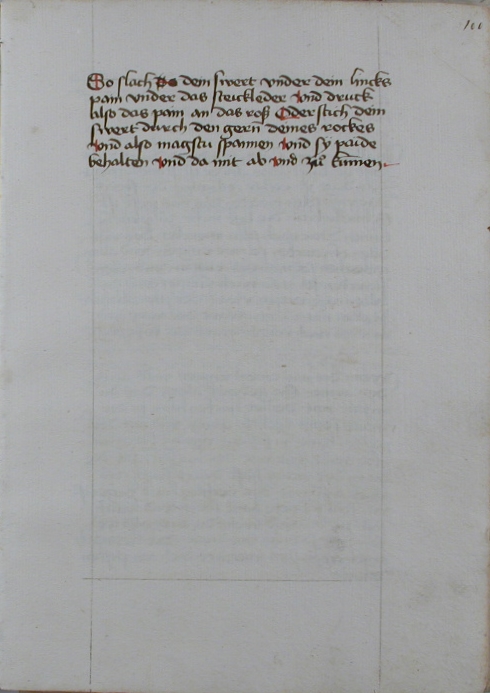 100
So slach dein swert vnder dein lincks
pain vnder das steickleder Vnd druck
also das pain an das roß Oder stich dein
swert durch den gern deines rockes
Vnd also magstu spannen Vnd sy paide
behalten Vnd da mit ab Vnd zů kumen